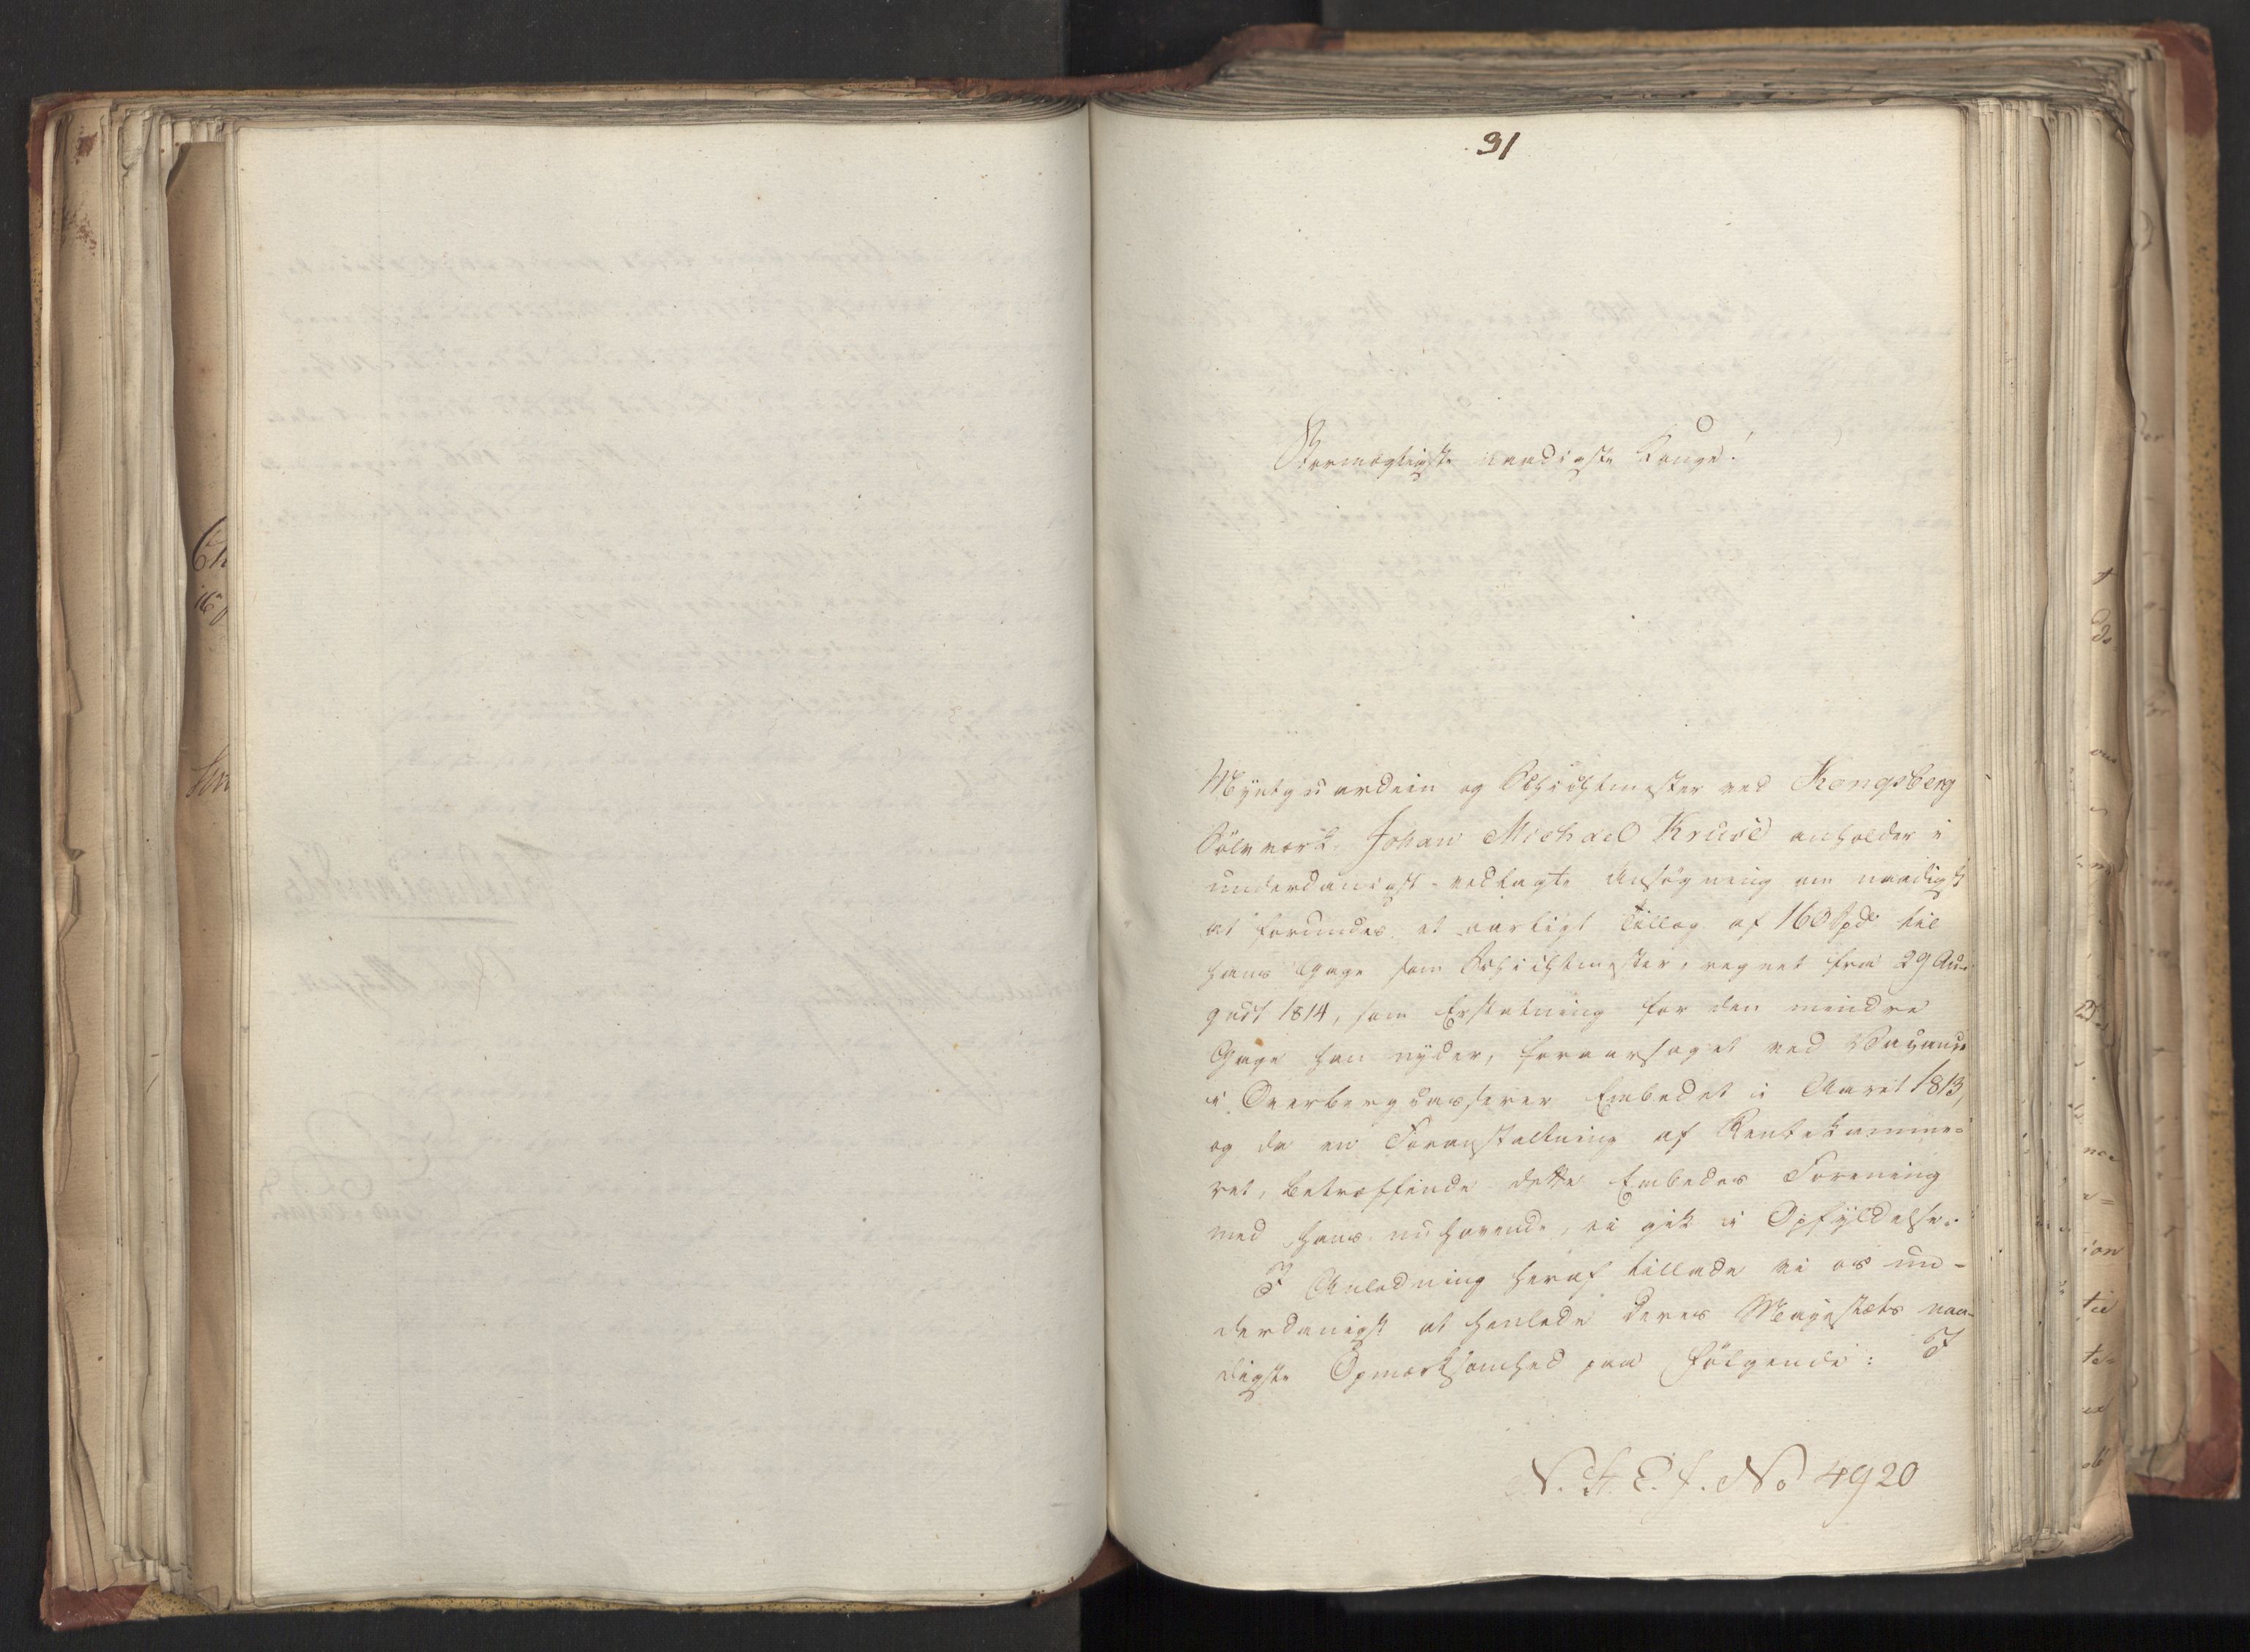 31
Stormægtigste naadigste Konge!
Myntguardein og Schichtmester ved Kongsberg
Sölvværk, Johan Michael Kruse anholder i
underdanigst-vedlagte Ansögning om naadigst
at forundes et aarligt Tillæg af 160 Spd. til
hans Gage som Schichtmester, regnet fra 29 Au-
gust 1814, som Erstatning for den mindre
Gage han nyder, foraarsaget ved Vacance
i Overbergcasserer Embedet i Aaret 1813,
og da en Foranstaltning af Rentekamme-
ret, betræffende dette Embedes Forening
med hans nu havende, ei gik i Opfyldelse.
I Anledning heraf tillade vi os un-
derdanigst at henlede Deres Majestæts naa-
digste Opmærksomhed paa fölgende: I
No 4920